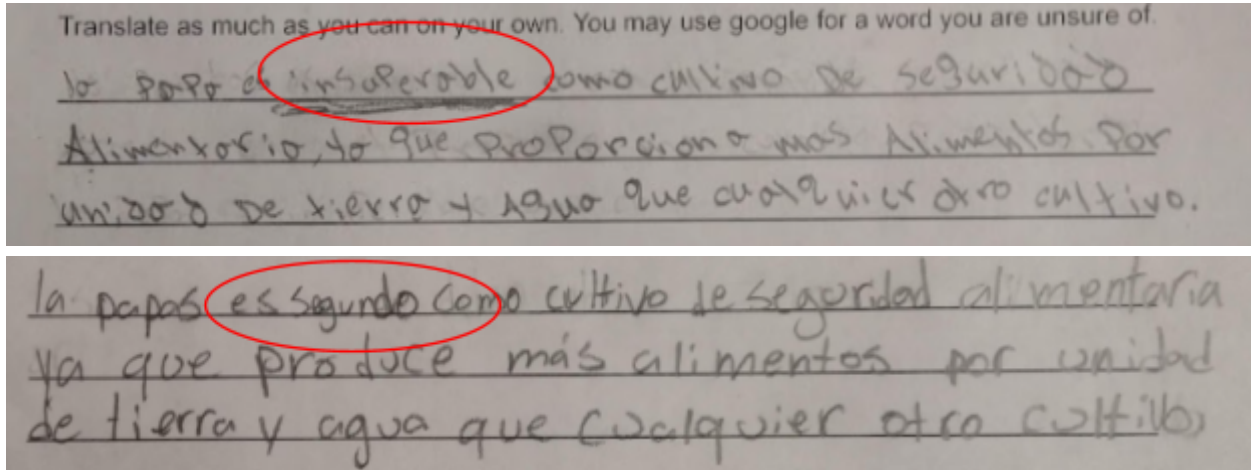 Translate as much as you can on your own. You may use google for a word you are unsure of.
la papa es insuperable como cultivo De seguridad
Alimentario, ya que proporciona mas Alimentos por
unidad De tierra y Agua que cualquier otro cultivo.
la papas es segundo como cultivo de seguridad alimentaria
ya que produce más alimentos por unidad
de tierra y agua que cualquier otro cultivo,